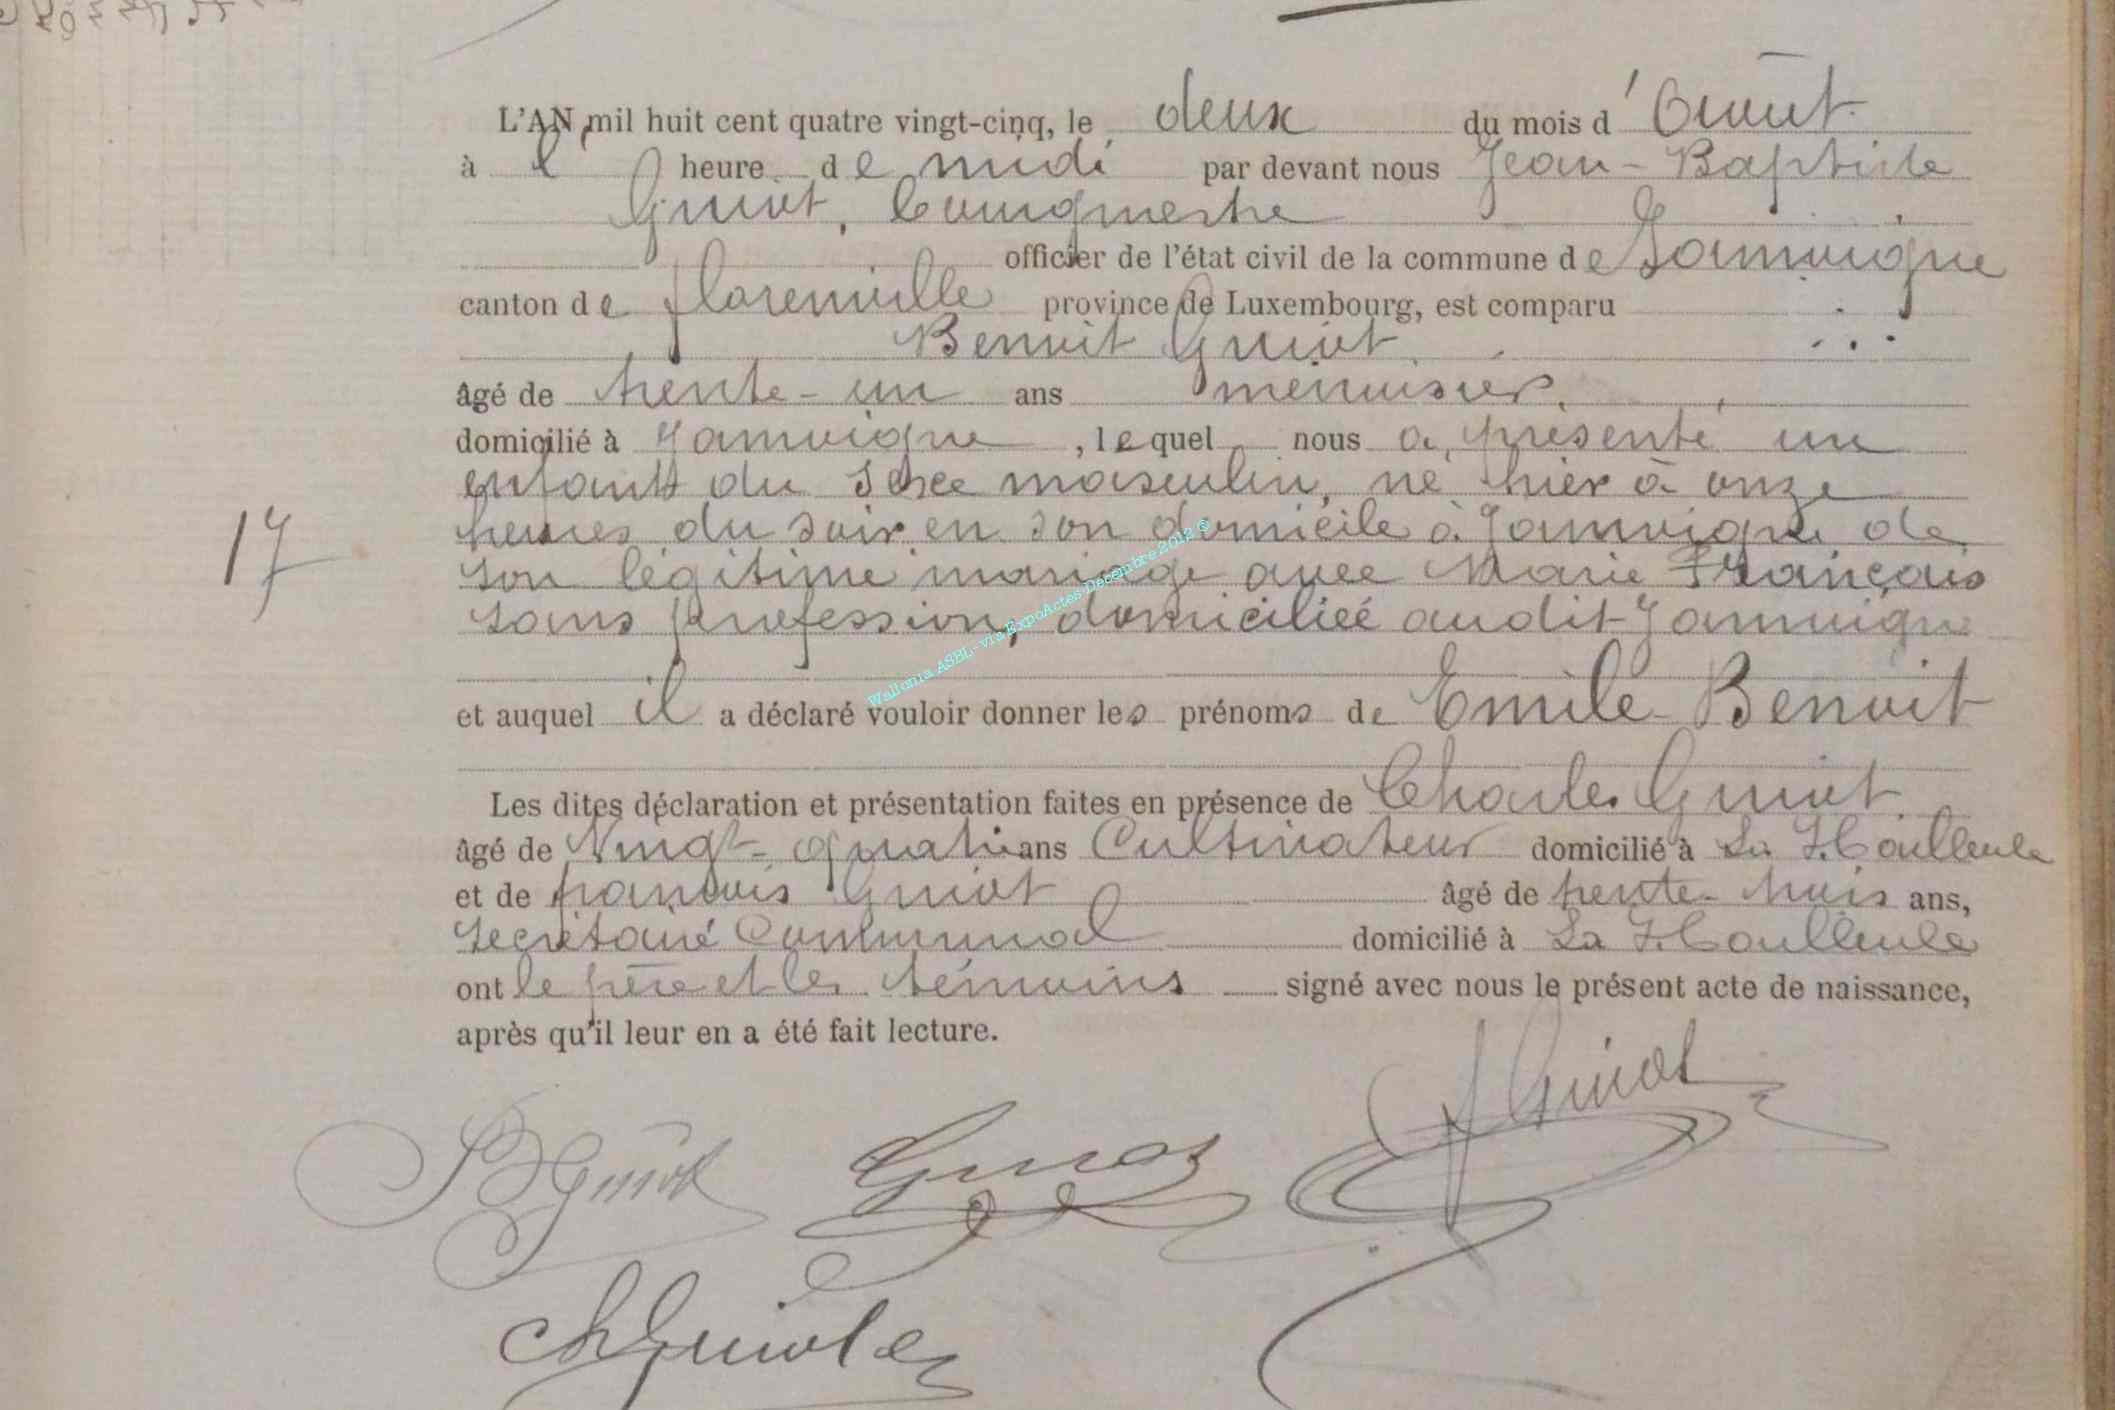 L'AN mil huit cent quatre vingt-cinq, le deux du mois d'Août
à l' heure de midi par devant nous Jean-Baptiste
Guiot, bourgmestre
officier de l'état civil de la commune de Jamoigne
canton de florenville province de Luxembourg, est comparu
Benoit Guiot
âgé de trente-un ans menuisier,
domicilié à Jamoigne, lequel nous a présenté un
enfant du sexe masculin, né hier à onze
heures du soir en son domicile à Jamoigne de
17
son légitime mariage avec Marie François
sans profession, domiciliée audit Jamoigne
Wallonia ASBL - via ExpoActes Décembre 2012 ©
et auquel il a déclaré vouloir donner les prénoms de Emile Benoit
Les dites déclaration et présentation faites en présence de Charles Guiot
âgé de Vingt-quatre ans Cultivateur domicilié à La Hailleule
et de françois Guiot âgé de trente-trois ans,
secrétaire Communal domicilié à La Hailleule
ont le père et les témoins signé avec nous le présent acte de naissance,
après qu'il leur en a été fait lecture.
Guiot
JBGuiot Guiot
ChGuiot